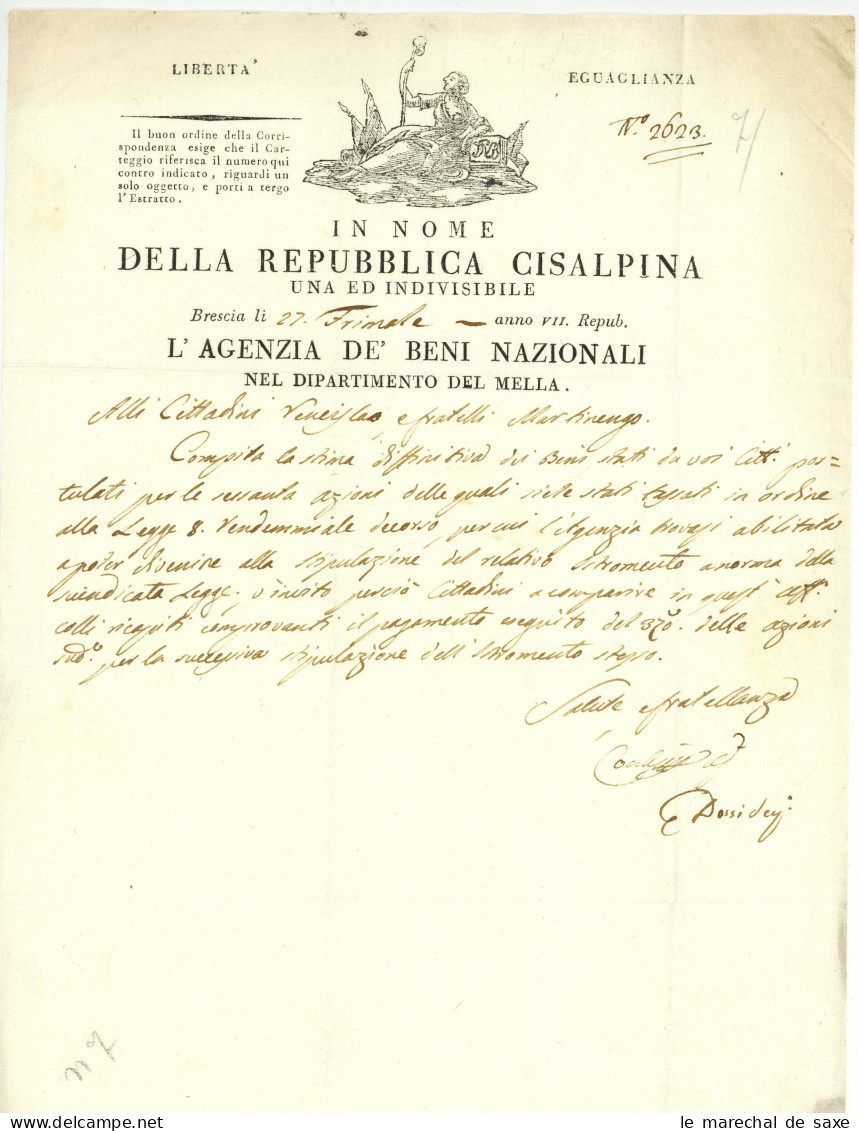 LIBERTA'
EGUAGLIANZA
N.º 2623.
7/
Il buon ordine della Corri-
spondenza esige che il Car-
teggio riferisca il numero qui
contro indicato, riguardi un
solo oggetto, e porti a tergo
l'Estratto.
IN NOME
DELLA REPUBBLICA CISALPINA
UNA ED INDIVISIBILE
Brescia li 27. Frimale — anno VII. Repub.
L'AGENZIA DE' BENI NAZIONALI
NEL DIPARTIMENTO DEL MELLA.
Alli Cittadini Venceslao e fratelli Martinengo.
Compita la stima diffinitiva dei Beni stati da voi Citt.i pos=
tulati per le sessanta azioni delle quali siete stati tassati in ordine
alla Legge 8. Vendemmiale decorso, per cui l'Agenzia trovasi abilitata
a poter divenire alla stipulazione del relativo Istromento a norma della
suindicata Legge. v'invito perciò Cittadini a comparire in quest'
colli requiti comprovanti il pagamento eseguito del 3zo. delle azioni
sudd.e per la successiva stipulazione dell'Istromento stesso.
Salute e fratellanza
Dossi
nº 7
le marechal de saxe